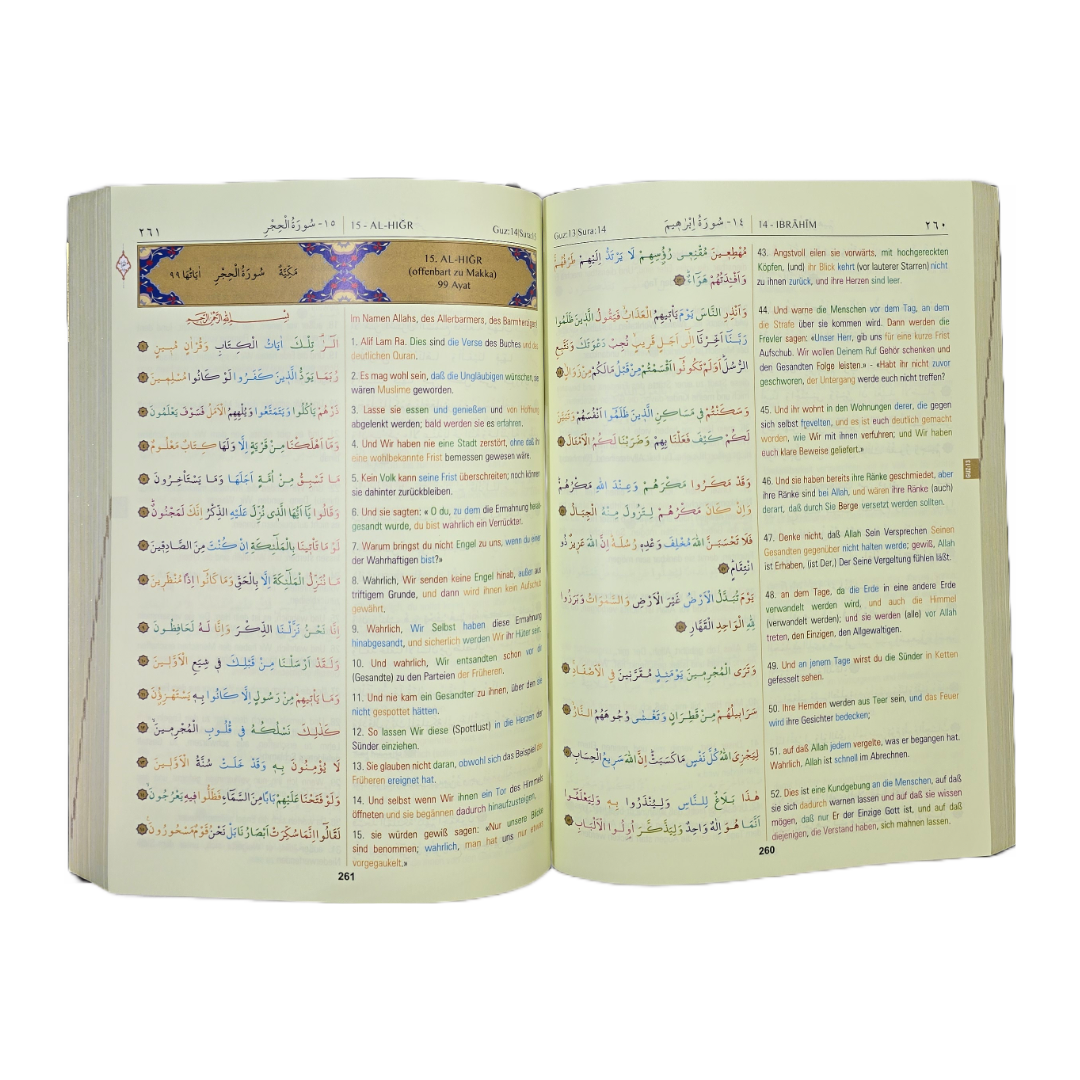 ٢٦٠
١٤- سُورَةُ اِبْرٰهِيمَ
14 - IBRĀHĪM
Guz:13|Sura:14
مُهْطِعِينَ مُقْنِعِى رُؤُسِهِمْ لَا يَرْتَدُّ اِلَيْهِمْ طَرْفُهُمْ
وَاَفْئِدَتُهُمْ هَوَٓاءٌ
وَاَنْذِرِ النَّاسَ يَوْمَ يَأْتِيهِمُ الْعَذَابُ فَيَقُولُ الَّذِينَ ظَلَمُوا
رَبَّنَٓا اَخِّرْنَٓا اِلٰٓى اَجَلٍ قَرِيبٍ نُجِبْ دَعْوَتَكَ وَنَتَّبِعِ
الرُّسُلَ اَوَلَمْ تَكُونُٓوا اَقْسَمْتُمْ مِنْ قَبْلُ مَالَكُمْ مِنْ زَوَالٍ
وَسَكَنْتُمْ فِى مَسَاكِنِ الَّذِينَ ظَلَمُٓوا اَنْفُسَهُمْ وَتَبَيَّنَ
لَكُمْ كَيْفَ فَعَلْنَا بِهِمْ وَضَرَبْنَا لَكُمُ الْاَمْثَالَ
وَقَدْ مَكَرُوا مَكْرَهُمْ وَعِنْدَ اللّٰهِ مَكْرُهُمْ
وَاِنْ كَانَ مَكْرُهُمْ لِتَزُولَ مِنْهُ الْجِبَالُ
فَلَا تَحْسَبَنَّ اللّٰهَ مُخْلِفَ وَعْدِهِ رُسُلَهُ اِنَّ اللّٰهَ عَزِيزٌ ذُو
انْتِقَامٍ
يَوْمَ تُبَدَّلُ الْاَرْضُ غَيْرَ الْاَرْضِ وَالسَّمٰوَاتُ وَبَرَزُوا
لِلّٰهِ الْوَاحِدِ الْقَهَّارِ
وَتَرَى الْمُجْرِمِينَ يَوْمَئِذٍ مُقَرَّنِينَ فِى الْاَصْفَادِ
سَرَابِيلُهُمْ مِنْ قَطِرَانٍ وَتَغْشٰى وُجُوهَهُمُ النَّارُ
لِيَجْزِىَ اللّٰهُ كُلَّ نَفْسٍ مَا كَسَبَتْ اِنَّ اللّٰهَ سَرِيعُ الْحِسَابِ
هٰذَا بَلَاغٌ لِلنَّاسِ وَلِيُنْذَرُوا بِهِ وَلِيَعْلَمُٓوا
اَنَّمَا هُوَ اِلٰهٌ وَاحِدٌ وَلِيَذَّكَّرَ اُولُوا الْاَلْبَابِ
43. Angstvoll eilen sie vorwärts, mit hochgereckten
Köpfen, (und) ihr Blick kehrt (vor lauterer Starren) nicht
zu ihnen zurück, und ihre Herzen sind leer.
44. Und warne die Menschen vor dem Tag, an dem
die Strafe über sie kommen wird. Dann werden die
Frevler sagen: «Unser Herr, gib uns für eine kurze Frist
Aufschub. Wir wollen Deinem Ruf Gehör schenken und
den Gesandten Folge leisten.» - «Habt ihr nicht zuvor
geschworen, der Untergang werde euch nicht treffen?
45. Und ihr wohnt in den Wohnungen derer, die gegen
sich selbst frevelten, und es ist euch deutlich gemacht
worden, wie Wir mit ihnen verfuhren; und Wir haben
euch klare Beweise geliefert.»
46. Und sie haben bereits ihre Ränke geschmiedet, aber
ihre Ränke sind bei Allah, und wären ihre Ränke (auch)
derart, daß durch Sie Berge versetzt werden sollten.
47. Denke nicht, daß Allah Sein Versprechen Seinen
Gesandten gegenüber nicht halten werde; gewiß, Allah
ist Erhaben, (ist Der.) Der Seine Vergeltung fühlen läßt.
48. an dem Tage, da die Erde in eine andere Erde
verwandelt werden wird, und auch die Himmel
(verwandelt werden); und sie werden (alle) vor Allah
treten, den Einzigen, den Allgewaltigen.
49. Und an jenem Tage wirst du die Sünder in Ketten
gefesselt sehen.
50. Ihre Hemden werden aus Teer sein, und das Feuer
wird ihre Gesichter bedecken;
51. auf daß Allah jedem vergelte, was er begangen hat.
Wahrlich, Allah ist schnell im Abrechnen.
52. Dies ist eine Kundgebung an die Menschen, auf daß
sie sich dadurch warnen lassen und auf daß sie wissen
mögen, daß nur Er der Einzige Gott ist, und auf daß
diejenigen, die Verstand haben, sich mahnen lassen.
260
٢٦١
١٥- سُورَةُ الْحِجْرِ
15 - AL-HIĞR
Guz:14|Sura:15
مَكِّيَّةٌ سُورَةُ الْحِجْرِ اٰيَاتُهَا ٩٩
15. AL-HIĞR
(offenbart zu Makka)
99 Ayat
بِسْمِ اللّٰهِ الرَّحْمٰنِ الرَّحِيمِ
الٓرٰ تِلْكَ اٰيَاتُ الْكِتَابِ وَقُرْاٰنٍ مُبِينٍ
رُبَمَا يَوَدُّ الَّذِينَ كَفَرُوا لَوْ كَانُوا مُسْلِمِينَ
ذَرْهُمْ يَأْكُلُوا وَيَتَمَتَّعُوا وَيُلْهِهِمُ الْاَمَلُ فَسَوْفَ يَعْلَمُونَ
وَمَٓا اَهْلَكْنَا مِنْ قَرْيَةٍ اِلَّا وَلَهَا كِتَابٌ مَعْلُومٌ
مَا تَسْبِقُ مِنْ اُمَّةٍ اَجَلَهَا وَمَا يَسْتَأْخِرُونَ
وَقَالُوا يَٓا اَيُّهَا الَّذِى نُزِّلَ عَلَيْهِ الذِّكْرُ اِنَّكَ لَمَجْنُونٌ
لَوْ مَا تَأْتِينَا بِالْمَلٰٓئِكَةِ اِنْ كُنْتَ مِنَ الصَّادِقِينَ
مَا نُنَزِّلُ الْمَلٰٓئِكَةَ اِلَّا بِالْحَقِّ وَمَا كَانُٓوا اِذًا مُنْظَرِينَ
اِنَّا نَحْنُ نَزَّلْنَا الذِّكْرَ وَاِنَّا لَهُ لَحَافِظُونَ
وَلَقَدْ اَرْسَلْنَا مِنْ قَبْلِكَ فِى شِيَعِ الْاَوَّلِينَ
وَمَا يَأْتِيهِمْ مِنْ رَسُولٍ اِلَّا كَانُوا بِهِ يَسْتَهْزِؤُنَ
كَذٰلِكَ نَسْلُكُهُ فِى قُلُوبِ الْمُجْرِمِينَ
لَا يُؤْمِنُونَ بِهِ وَقَدْ خَلَتْ سُنَّةُ الْاَوَّلِينَ
وَلَوْ فَتَحْنَا عَلَيْهِمْ بَابًا مِنَ السَّمَٓاءِ فَظَلُّوا فِيهِ يَعْرُجُونَ
لَقَالُٓوا اِنَّمَا سُكِّرَتْ اَبْصَارُنَا بَلْ نَحْنُ قَوْمٌ مَسْحُورُونَ
Im Namen Allahs, des Allerbarmers, des Barmherzigen!
1. Alif Lam Ra. Dies sind die Verse des Buches und des
deutlichen Quran.
2. Es mag wohl sein, daß die Ungläubigen wünschen, sie
wären Muslime geworden.
3. Lasse sie essen und genießen und von Hoffnung
abgelenkt werden; bald werden sie es erfahren.
4. Und Wir haben nie eine Stadt zerstört, ohne daß ihr
eine wohlbekannte Frist bemessen gewesen wäre.
5. Kein Volk kann seine Frist überschreiten; noch können
sie dahinter zurückbleiben.
6. Und sie sagten: « O du, zu dem die Ermahnung herab-
gesandt wurde, du bist wahrlich ein Verrückter.
7. Warum bringst du nicht Engel zu uns, wenn du einer
der Wahrhaftigen bist?»
8. Wahrlich, Wir senden keine Engel hinab, außer aus
triftigem Grunde, und dann wird ihnen kein Aufschub
gewährt.
9. Wahrlich, Wir Selbst haben diese Ermahnung
hinabgesandt, und sicherlich werden Wir ihr Hüter sein.
10. Und wahrlich, Wir entsandten schon vor dir
(Gesandte) zu den Parteien der Früheren.
11. Und nie kam ein Gesandter zu ihnen, über den sie
nicht gespottet hätten.
12. So lassen Wir diese (Spottlust) in die Herzen der
Sünder einziehen.
13. Sie glauben nicht daran, obwohl sich das Beispiel der
Früheren ereignet hat.
14. Und selbst wenn Wir ihnen ein Tor des Himmels
öffneten und sie begännen dadurch hinaufzusteigen,
15. sie würden gewiß sagen: «Nur unsere Blicke
sind benommen; wahrlich, man hat uns nur etwas
vorgegaukelt.»
261